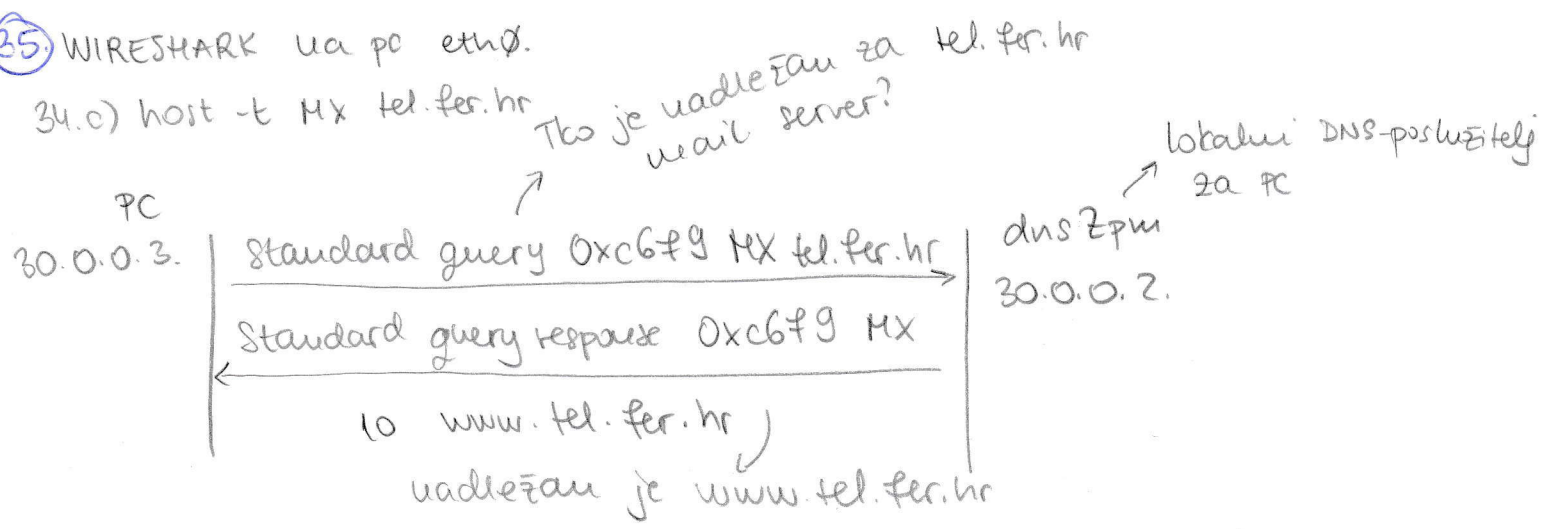 35. WIRESHARK na pc eth0.
34.c) host -t MX tel.fer.hr
Tko je nadležan za tel.fer.hr
mail server?
lokalni DNS-poslužitelj
za PC
PC
30.0.0.3.
Standard query 0xc679 MX tel.fer.hr
dnsZpm
30.0.0.2.
Standard query response 0xc679 MX
10 www.tel.fer.hr
nadležan je www.tel.fer.hr